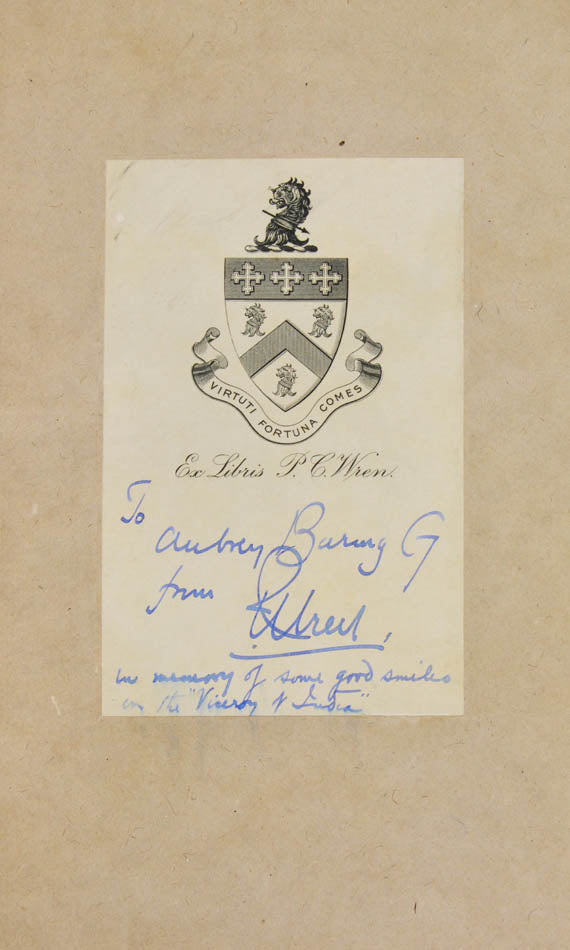 VIRTUTI FORTUNA COMES
Ex Libris P. C. Wren.
To
Aubrey Baring G
from
P. C. Wren,
in memory of some good smiles
in the "Viceroy of India"